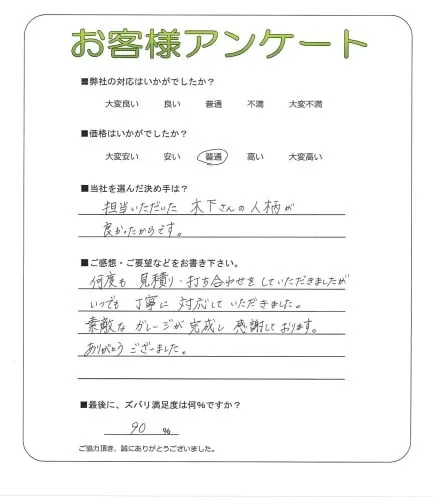 お客様アンケート
■弊社の対応はいかがでしたか？
大変良い 良い 普通 不満 大変不満
■価格はいかがでしたか？
大変安い 安い 普通 高い 大変高い
■当社を選んだ決め手は？
担当いただいた 木下さんの人柄が
良かったからです。
■ご感想・ご要望などをお書き下さい。
何度も 見積り・打ち合わせをしていただきましたが
いつでも 丁寧に 対応して いただきました。
素敵な ガレージが 完成し 感謝しております。
ありがとう ございました。
■最後に、ズバリ満足度は何％ですか？
90 ％
ご協力頂き、誠にありがとうございました。